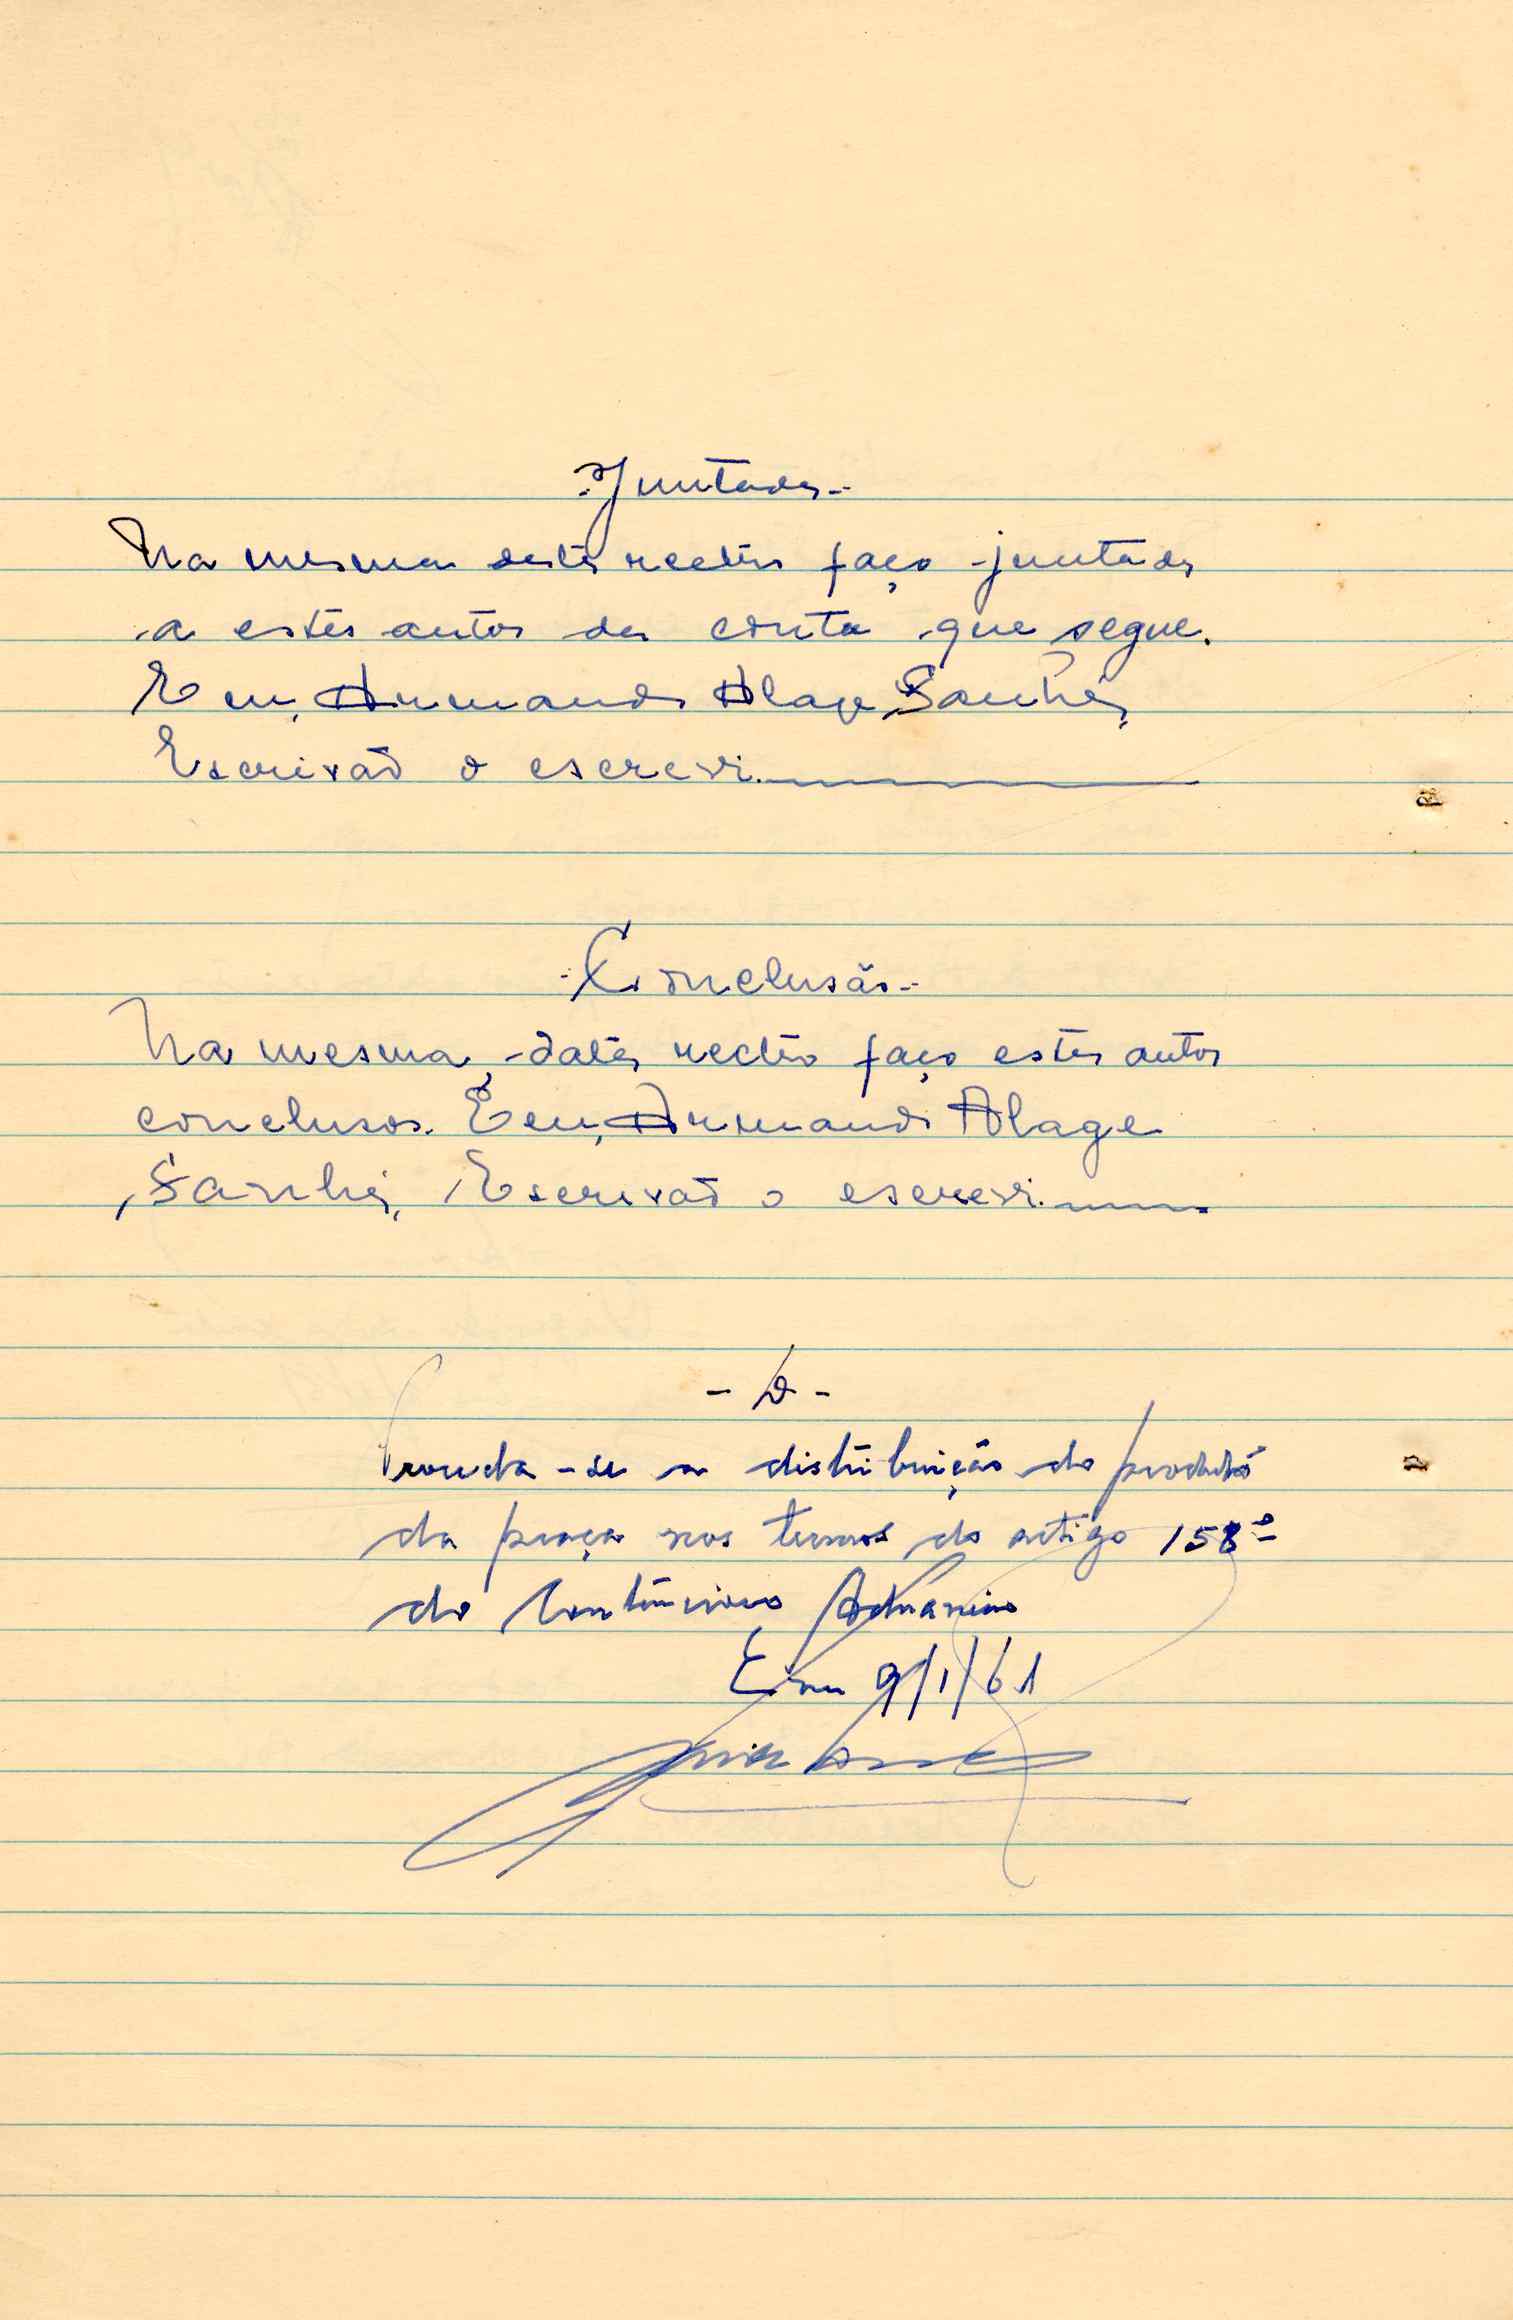 -Juntada-
Na mesma data recten faço juntada
a estes autos da conta que segue.
E eu, Armando Alage Sanhá,
Escrivão o escrevi.
-Conclusão-
Na mesma data recto faço estes autos
conclusos. E eu, Armando Alage
Sanhá, Escrivão o escrevi.
- D -
Proceda-se a distribuição do producto
da praça nos termos do artigo 158º
do Contencioso Aduaneiro
Em 9/1/61